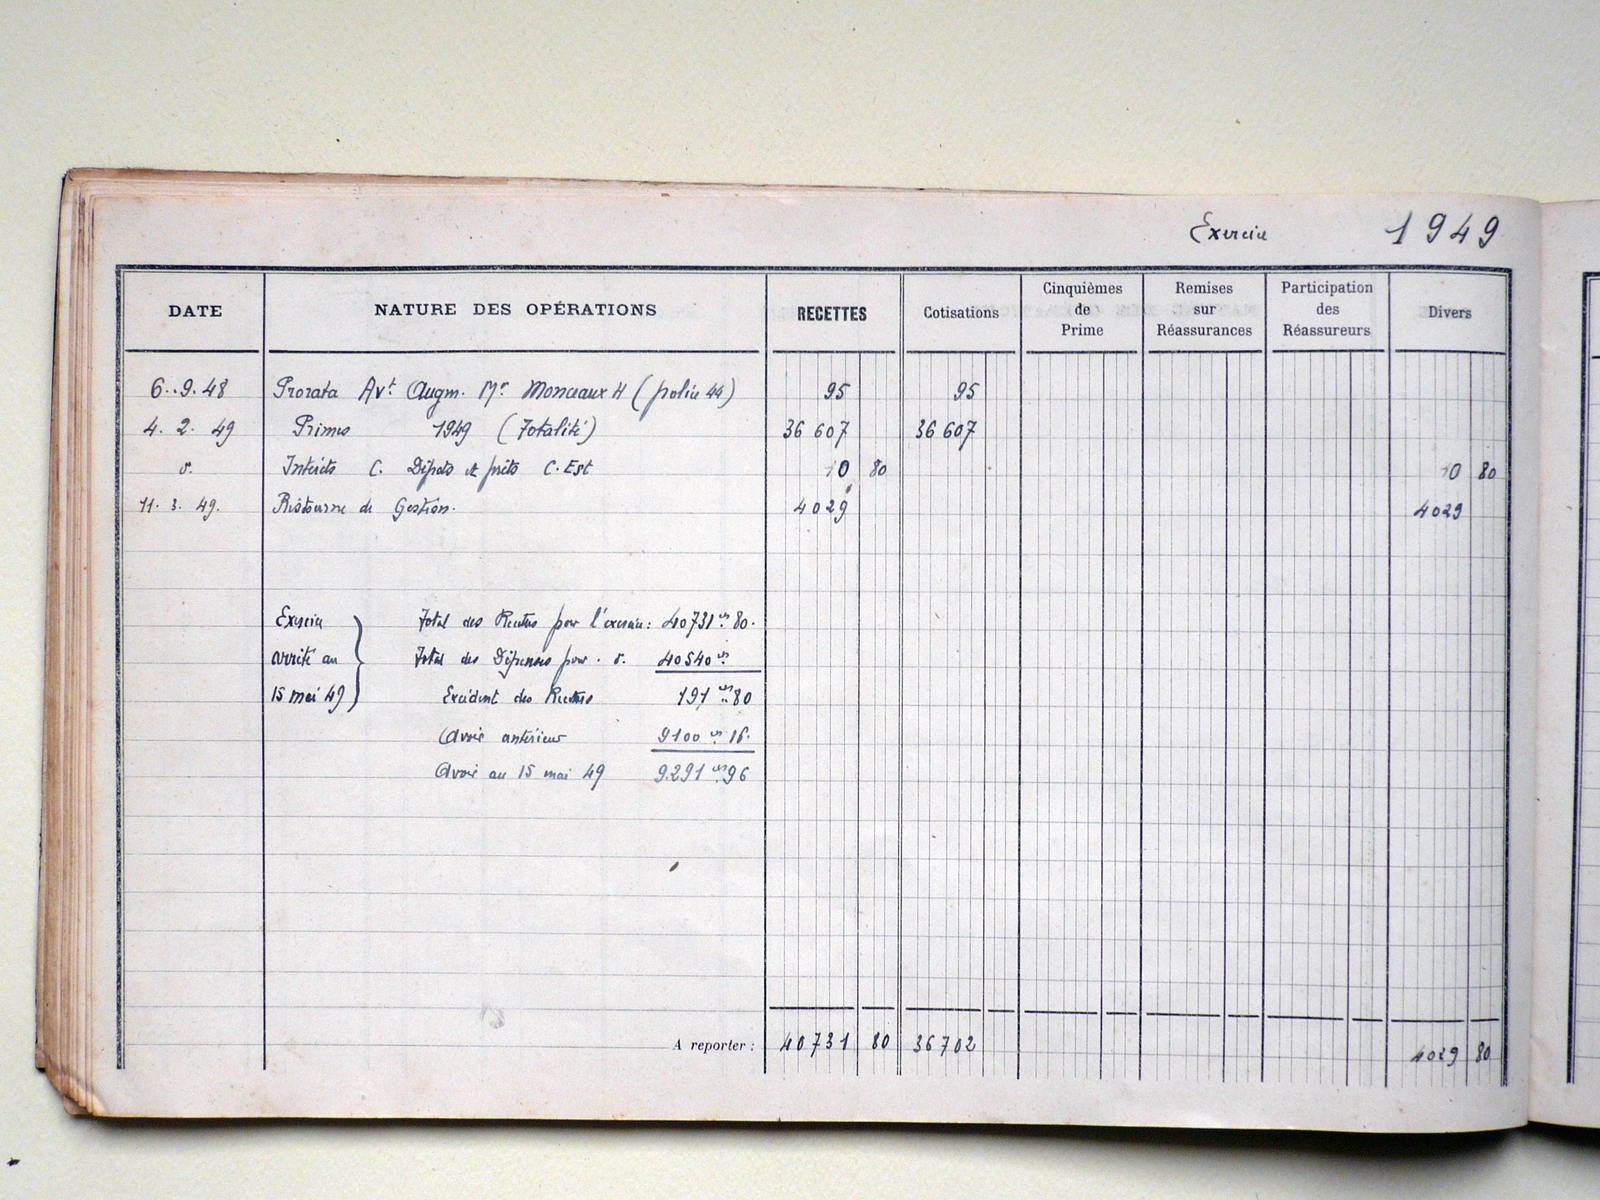 Exercice 1949
DATE NATURE DES OPÉRATIONS RECETTES Cotisations Cinquièmes de Prime Remises sur Réassurances Participation des Réassureurs Divers
6.9.48 Prorata Avt Augm. Mr Monceaux H (police 44) 95 95
4. 2. 49 Primes 1949 (Totalité) 36 607 36 607
d. Intérêts C. Dépots et prêts C. Est 0 80 0 80
11. 3. 49. Ristourne de Gestion. 4029 4029
Exercice Total des Recettes pour l'exercice: 40731 frs 80.
arrêté au Total des Dépenses pour. d. 40540 frs
15 mai 49 Excédent des Recettes 191 frs 80
Avoir antérieur 9100 frs 16.
Avoir au 15 mai 49 9291 frs 96
A reporter : 40731 80 36702 4029 80